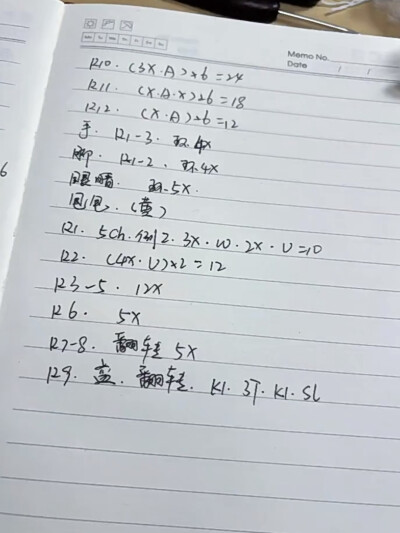 Memo No.
Date / /
Mo Tu We Th Fr Sa Su
R10. (3X.A)*6=24
R11. (X.A.X)*6=18
R12. (X.A)*6=12
手. R1-3. 环4X
脚. R1-2. 环4X
眼睛. 环5X.
(黄)
R1. 5ch.倒2.3X.W.2X.V=10
R2. (4X.V)*2=12
R3-5. 12X
R6. 5X
R7-8. 翻转5X
R9. 翻转. K1.3T.K1.SL
6